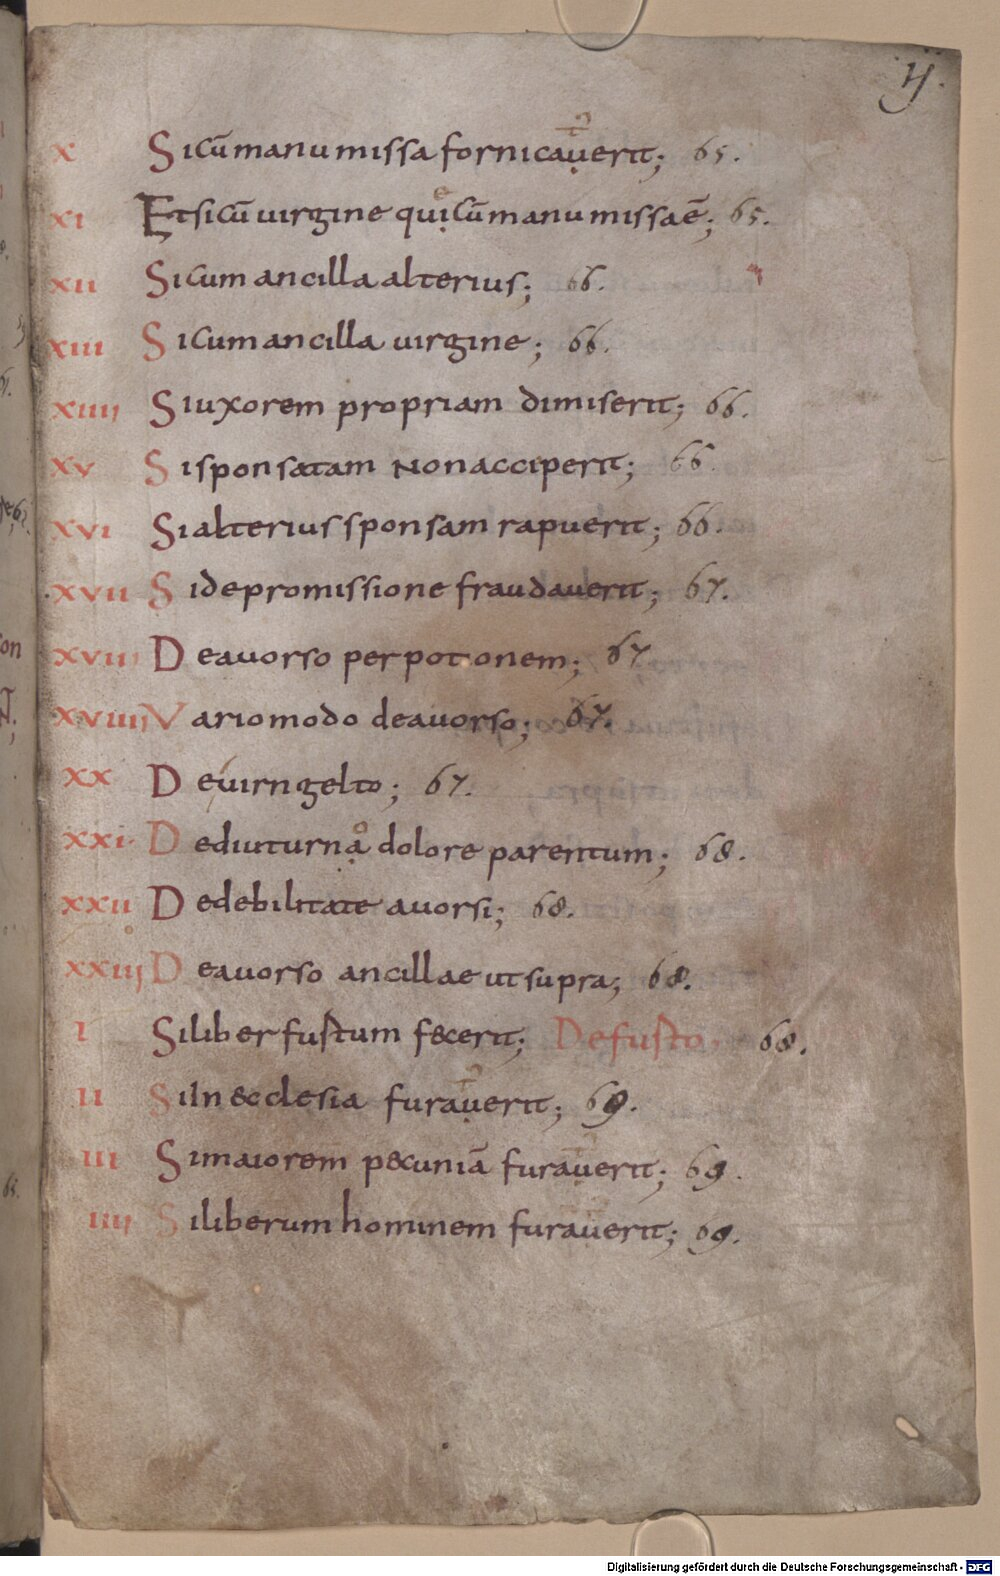 ij.
X Sicū manumissa fornicaverit; 65.
XI Et si cū virgine qui cū manumissa ē; 65.
XII Si cum ancilla alterius; 66.
XIII Si cum ancilla virgine; 66.
XIIII Si uxorem propriam dimiserit; 66.
XV Si sponsatam non acciperit; 66.
XVI Si alterius sponsam rapuerit; 66.
XVII Si de promissione fraudaverit; 67.
XVIII De avorso per potionem; 67
XVIIII Vario modo de avorso; 67.
XX De virngelto; 67.
XXI. De diuturna dolore parentum; 68.
XXII De debilitate avorsi; 68.
XXIII De avorso ancillae ut supra; 68.
I Si liber fustum fecerit; De fusto. 68.
II Si in ecclesia furaverit; 69.
III Si maiorem pecuniā furaverit; 69.
IIII Si liberum hominem furaverit; 69.
Digitalisierung gefördert durch die Deutsche Forschungsgemeinschaft - DFG